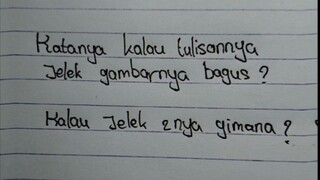 Katanya kalau tulisannya
Jelek gambarnya bagus ?
Kalau Jelek 2nya gimana ?